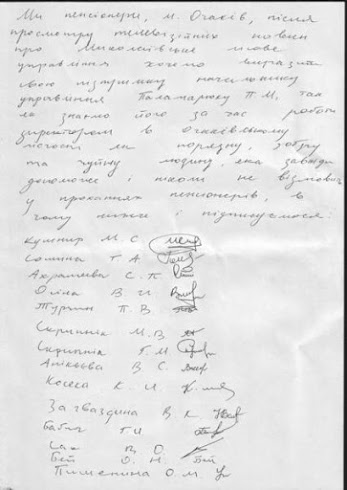 Ми пенсіонери, м. Очаків, після
просмотру телевізійніх новин
про Миколаївське лісове
управління хочемо виразити
свою підтримку начальнику
управління Паламарюку П.М, так
як знаємо його за час роботи
директором в Очаківському
лісгоспі як порядну, добру
та чуйну людину, яка завжди
допоможе і ніколи не відмовить
у проханнях пенсіонерів, в
чому нижче і підписуємося:
Кушнир М. С.
Сомина Т А
С. П.
В. И.
Турчин П. В
Скрипнік М. В.
Скрипнік Г. М
В. С.
Косека К. И.
Загваздина В. К.
Бабич Г. И
Сак В О.
Бей О. Н. Бей
Пименина О. М.